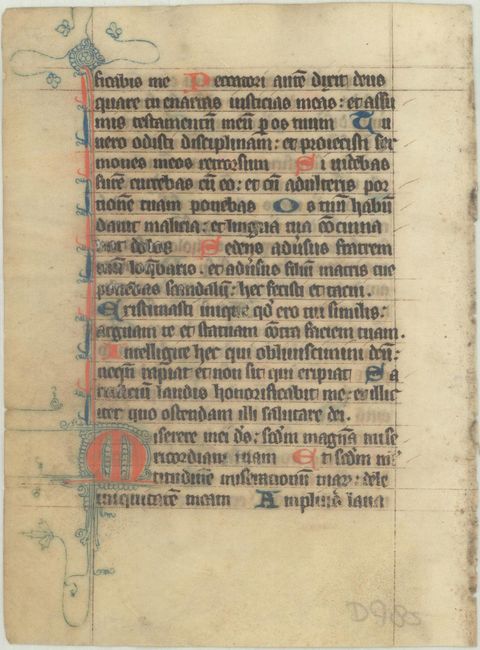 ficabis me Peccatori autē dixit deus
quare tu enarras iusticias meas: et assu
mis testamentū meū p os tuum Tu
uero odisti disciplinam: et proiecisti ser
mones meos retrorsum Si uidebas
furē currebas cū eo: et cū adulteris por
tionē tuam ponebas Os tuū habū
dauit malicia: et lingua tua cōcinna
bat dolos Sedens adūsus fratrem
tuū loq̄baris: et adūsus filiū matris tue
ponebas scandalū: hec fecisti et tacui.
Existimasti inique qd ero tui similis:
arguam te et statuam cōtra faciem tuam.
Intelligite hec qui obliuiscimini deū:
neqn̄ rapiat et non sit qui eripiat Sa
crificiū laudis honorificabit me: et illic
iter quo ostendam illi salutare dei.
Miserere mei ds: scdm magnā mise
ricordiam tuam Et scdm mł
titudinē miserationū tuar: dele
iniquitatē meam Amplius laua
D985